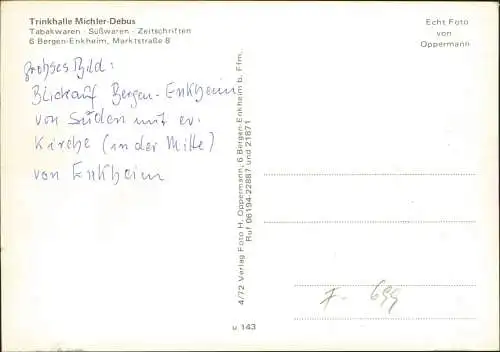 Trinkhalle Michler-Debus
Tabakwaren · Süßwaren · Zeitschriften
6 Bergen-Enkheim, Marktstraße 8
Echt Foto
von
Oppermann
großses Bild:
Blick auf Bergen-Enkheim
von Süden mit ev.
Kirche (in der Mitte)
von Enkheim
4/72 Verlag Foto H. Oppermann, 6 Bergen-Enkheim b. Ffm.
Ruf 06194-22887 und 21871
F- 699
u 143